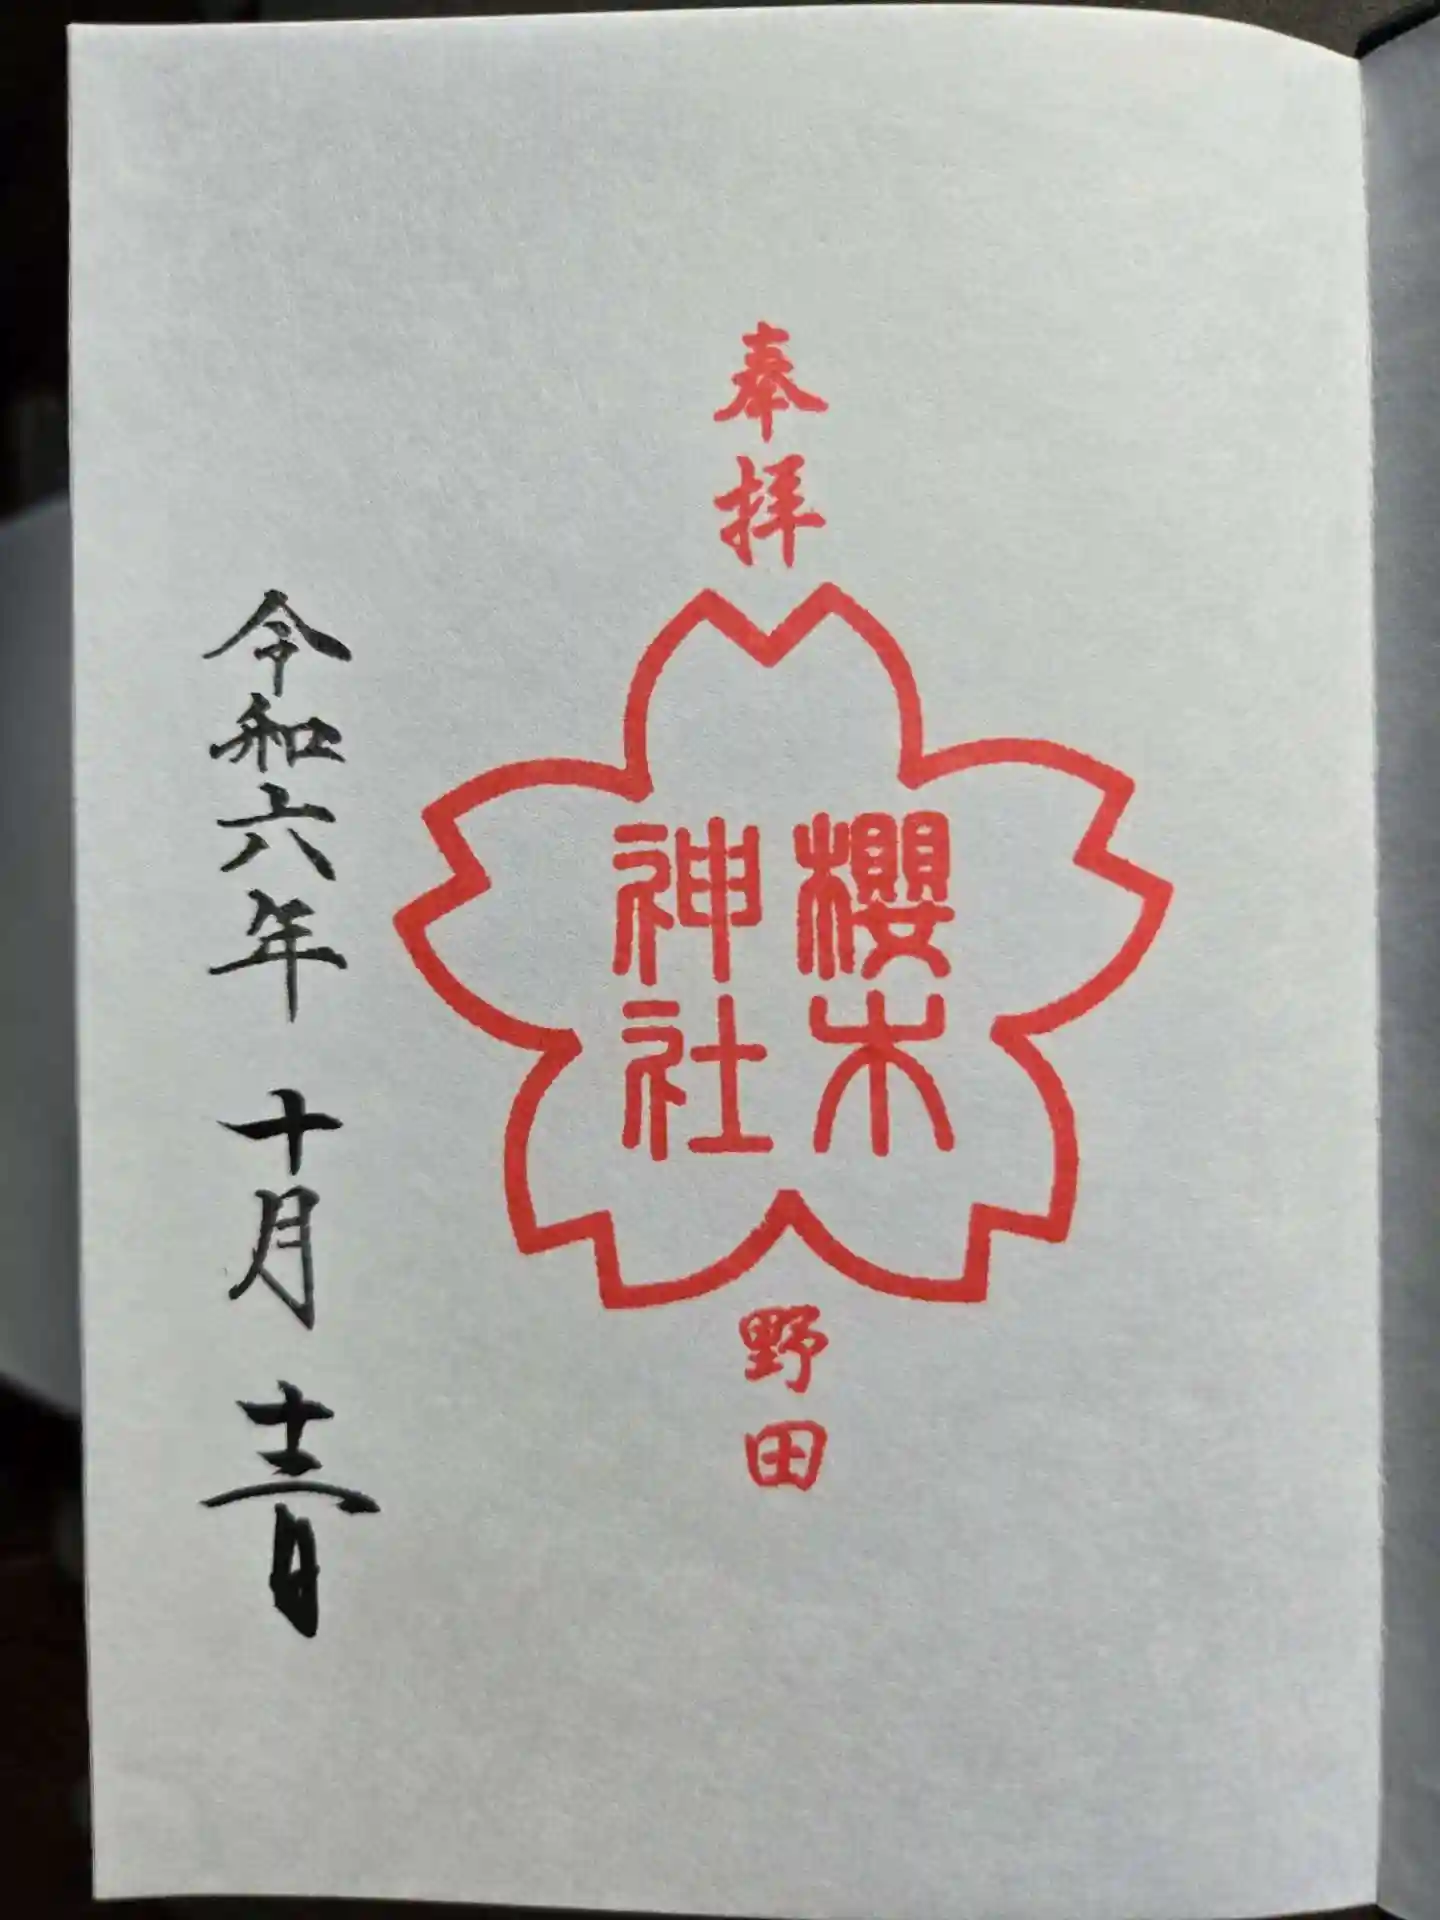 奉拝
櫻木
神社
野田
令和六年 十月 十三日